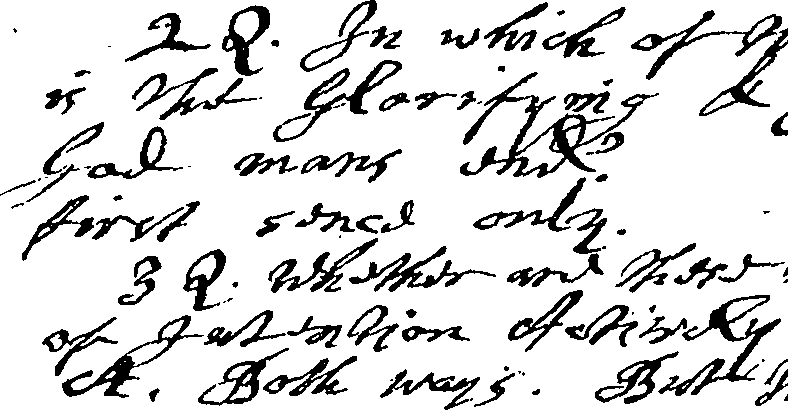 2 Q. In which of
is the Glorifying &
God mans end?
first sence only.
3 Q. Whether are these
of Intention Actively
A. Both ways. But